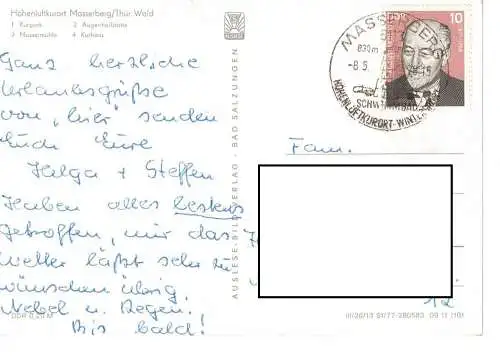 Höhenluftkurort Masserberg/Thür. Wald
1 Kurpark 2 Augenheilstätte
3 Massemühle 4 Kurhaus
Ganz herzliche
Urlaubsgrüße
von „hier" senden
Euch Eure
Helga + Steffen
Haben alles bestens
getroffen, nur das
Wetter läßt sehr zu
wünschen übrig.
Nebel u. Regen.
Bis bald!
AUSLESE-BILD-VERLAG · BAD SALZUNGEN
MASSERBERG
830m
-8.5.
SCHWIMMBAD
HÖHENLUFTKURORT-WINTER
DDR
10
Fam.
12
III/26/13 S1/77-280583 09 11 (10)